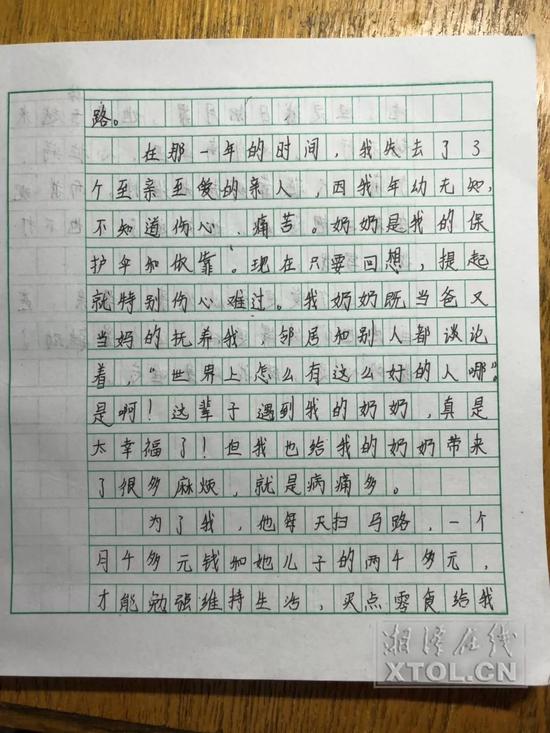 路。
在那一年的时间，我失去了3
个至亲至爱的亲人，因我年幼无知，
不知道伤心、痛苦。奶奶是我的保
护伞和依靠。现在只要回想，提起
就特别伤心难过。我奶奶既当爸又
当妈的抚养我，邻居和别人都谈论
着，“世界上怎么有这么好的人哪”。
是啊！这辈子遇到我的奶奶，真是
太幸福了！但我也给我的奶奶带来
了很多麻烦，就是病痛多。
为了我，她每天扫马路，一个
月千多元钱和她儿子的两千多元，
才能勉强维持生活，买点零食给我
湘潭在线
XTOL.CN